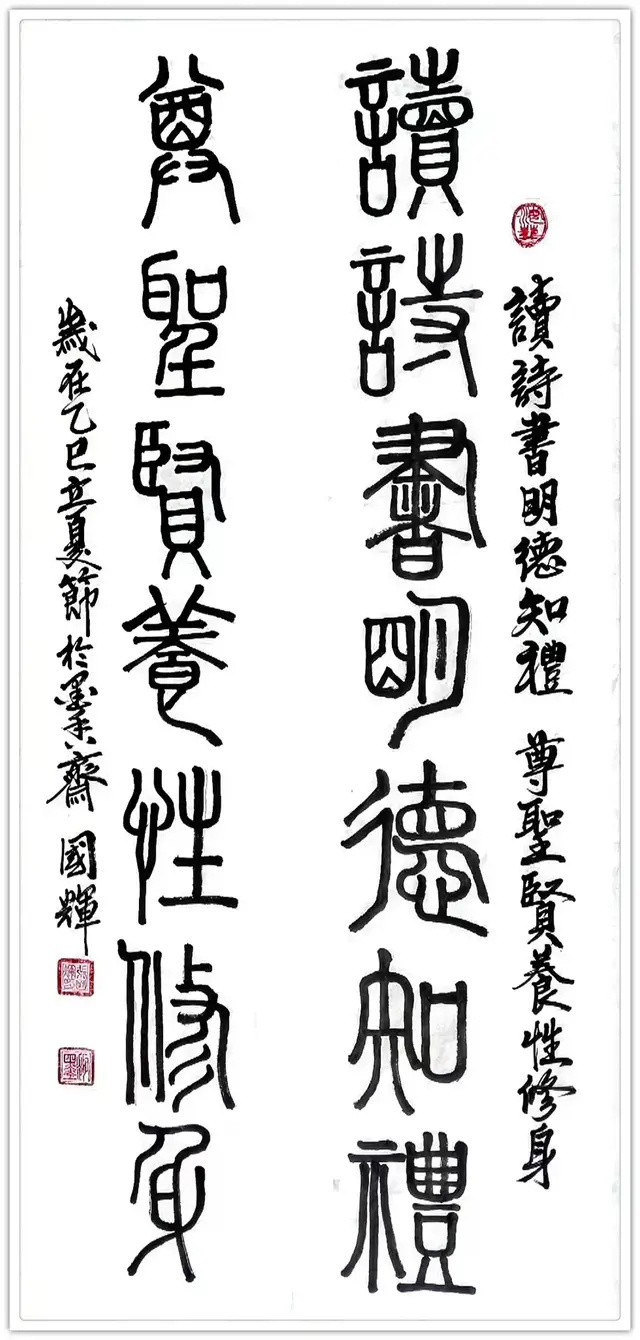 讀詩書明德知禮 尊聖賢養性修身
讀詩書明德知禮
尊聖賢養性修身
歲在乙巳立夏節於墨香齋 國輝